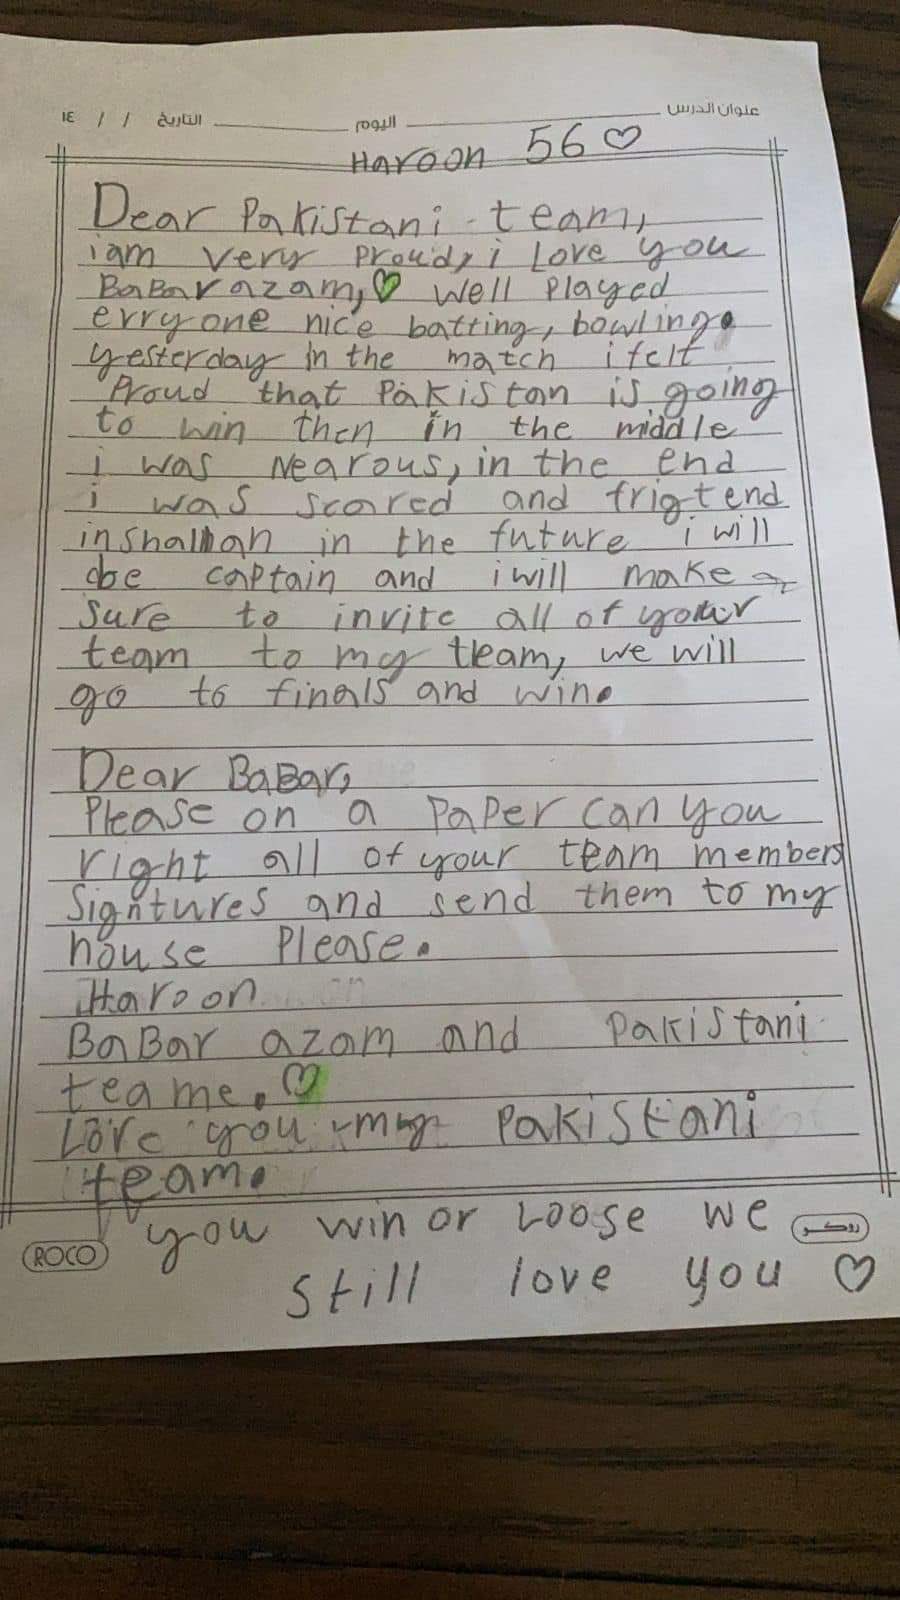 عنوان الدرس اليوم التاريخ / / ١٤
Haroon 56♡
Dear Pakistani team,
i am very proud, i love you
BaBar azam,♡ well played
erryone nice batting, bowling.
yesterday in the match i felt
Proud that Pakistan is going
to win then in the middle
i was nearous, in the end
i was scared and frigtend
inshallhah in the future i will
be captain and i will make
sure to invite all of your
team to my team, we will
go to finals and win.
Dear BaBar,
Please on a paper can you
right all of your team members
Signtures and send them to my
house Please.
Haroon
BaBar azam and Pakistani
teame.♡
Love you my Pakistani
team.
you win or Loose we
still love you ♡
ROCO
روكو